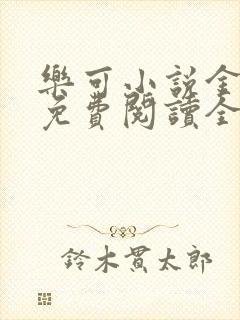 樂可小說全
免費閱讀全
鈴木貫太郎